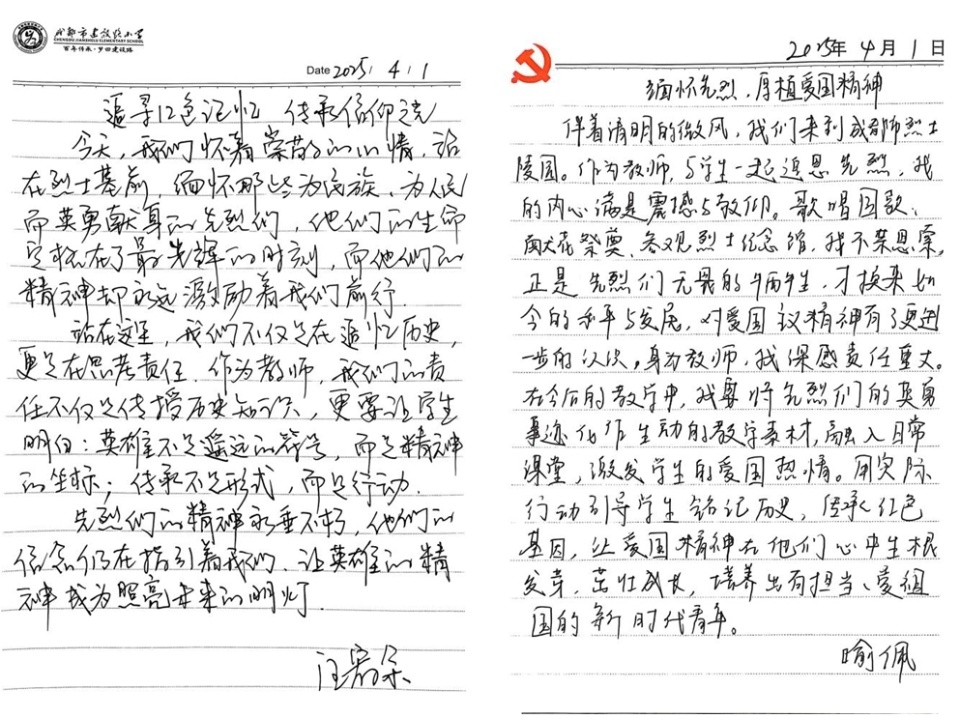 成都市建设路小学
CHENGDU JIANSHELU ELEMENTARY SCHOOL
百年传承·梦回建设路
Date 2025/ 4/ 1
追寻红色记忆 传承信仰之光
今天，我们怀着崇敬的心情，站
在烈士墓前，缅怀那些为民族、为人民
而英勇献身的先烈们，他们的生命
定格在了最光辉的时刻，而他们的
精神却永远激励着我们前行.
站在这里，我们不仅是在追忆历史，
更是在思考责任. 作为教师，我们的责
任不仅是传授历史知识，更要让学生
明白：英雄不是遥远的符号，而是精神
的坐标；传承不是形式，而是行动.
先烈们的精神永垂不朽，他们的
信念仍在指引着我们. 让英雄的精
神成为照亮未来的明灯.
2025年 4月 1日
缅怀先烈，厚植爱国精神
伴着清明的微风，我们来到成都烈士
陵园。作为教师，与学生一起追思先烈，我
的内心满是震撼与敬仰。歌唱国歌、
献花祭奠、参观烈士纪念馆，我不禁思索，
正是先烈们无畏的牺牲，才换来如
今的和平与发展，对爱国主义精神有了更进
一步的认识，身为教师，我深感责任重大。
在今后的教学中，我要将先烈们的英勇
事迹化作生动的教学素材，融入日常
课堂，激发学生的爱国热情。用实际
行动引导学生铭记历史，传承红色
基因，让爱国精神在他们心中生根
发芽，茁壮成长，培养出有担当、爱祖
国的新时代青年。
喻佩